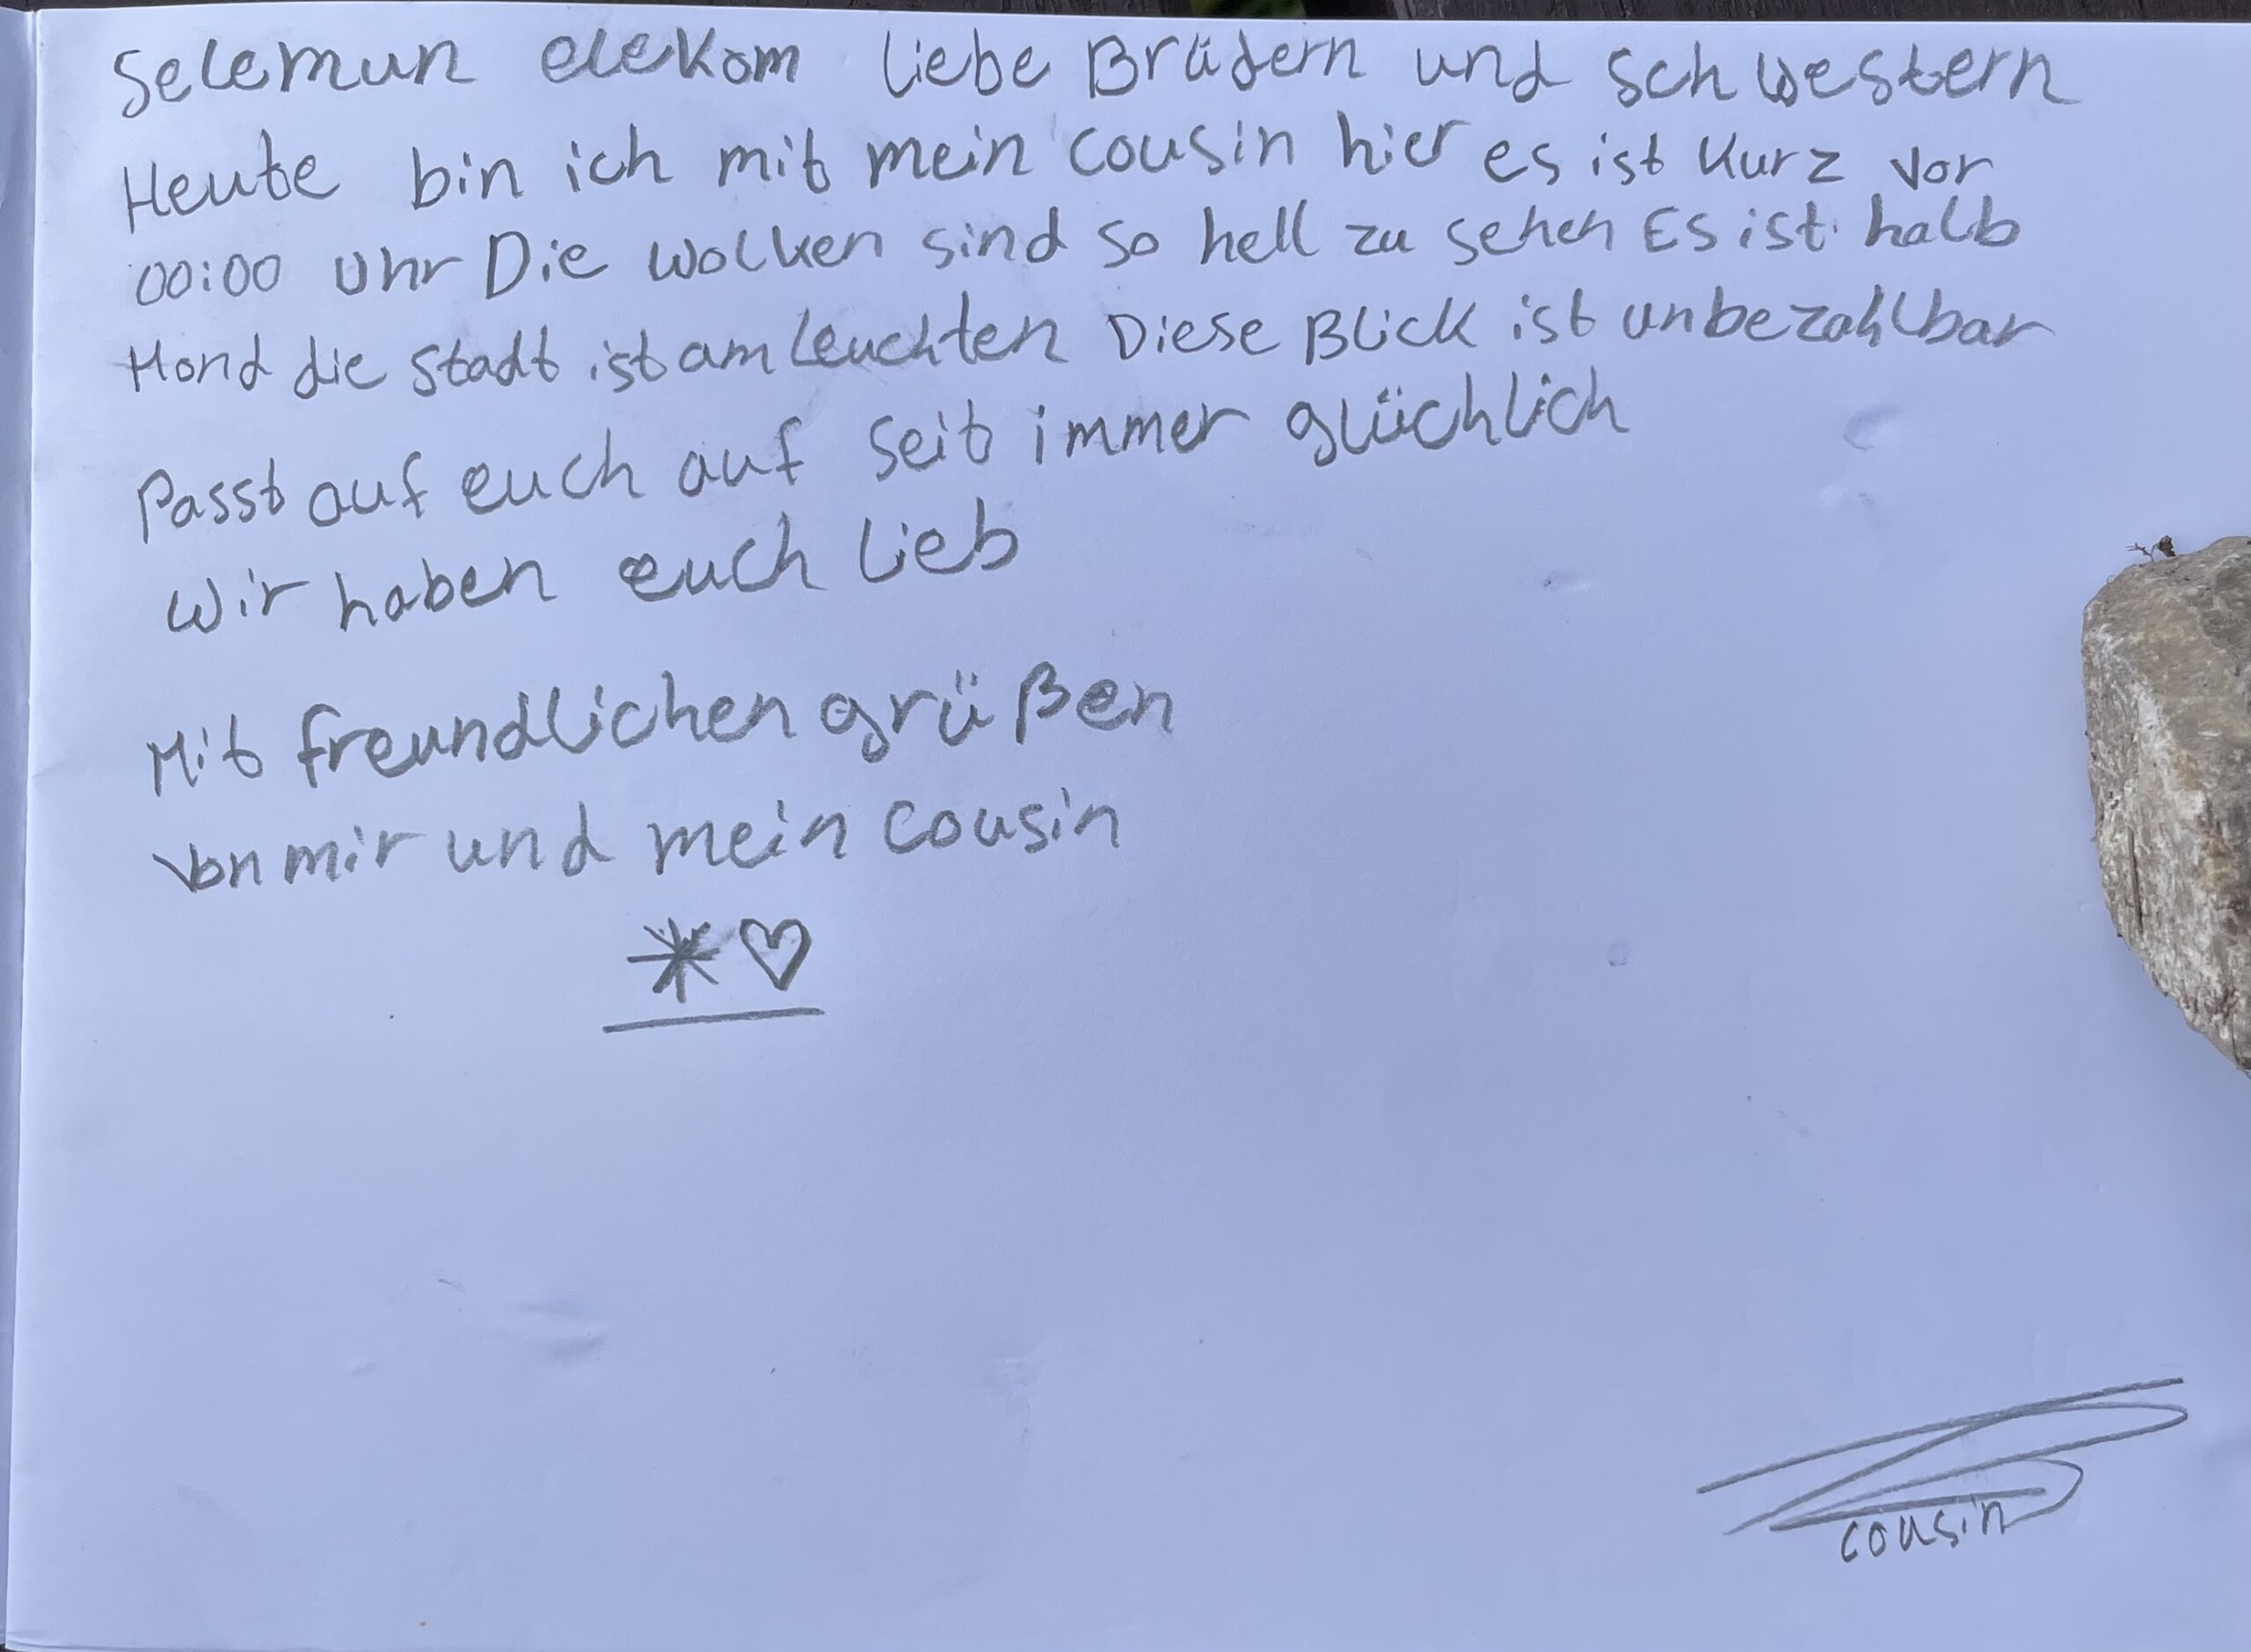 Selemun elekom liebe Brüdern und schwestern
Heute bin ich mit mein cousin hier es ist kurz vor
00:00 Uhr Die wolken sind so hell zu sehen Es ist halb
Mond die stadt ist am leuchten Diese Blick ist unbezahlbar
Passt auf euch auf seit immer glüchlich
wir haben euch lieb
Mit freundlichen grüßen
von mir und mein cousin
cousin